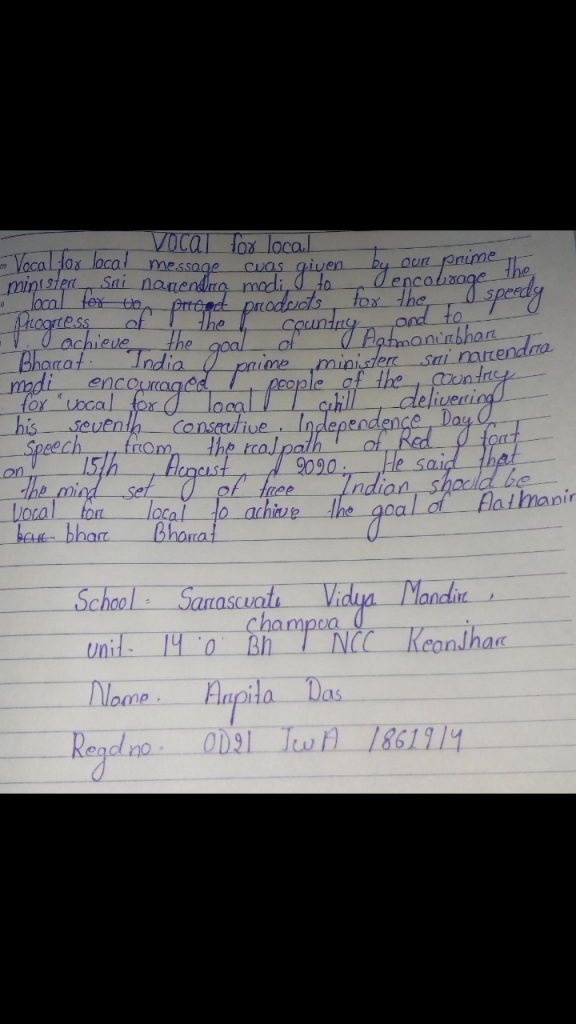 VOCAL for local
Vocal for local message was given by our prime
minister sri narendra modi to encourage the
local for products for the speedy
Progress of the country and to
achieve the goal of Aatmanirbhar
Bharat. India prime minister sri narendra
modi encouraged people of the country
for "vocal for local" while delivering
his seventh consecutive Independence Day
Speech from the realpath of Red fort
on 15th August 2020. He said that
the mind set of free Indian should be
vocal for local to achieve the goal of Aatmanir
bhar Bharat
School - Saraswati Vidya Mandir,
champua
unit - 14 O Bn NCC Keonjhar
Name - Arpita Das
Regd no - OD21 JWA 1861914